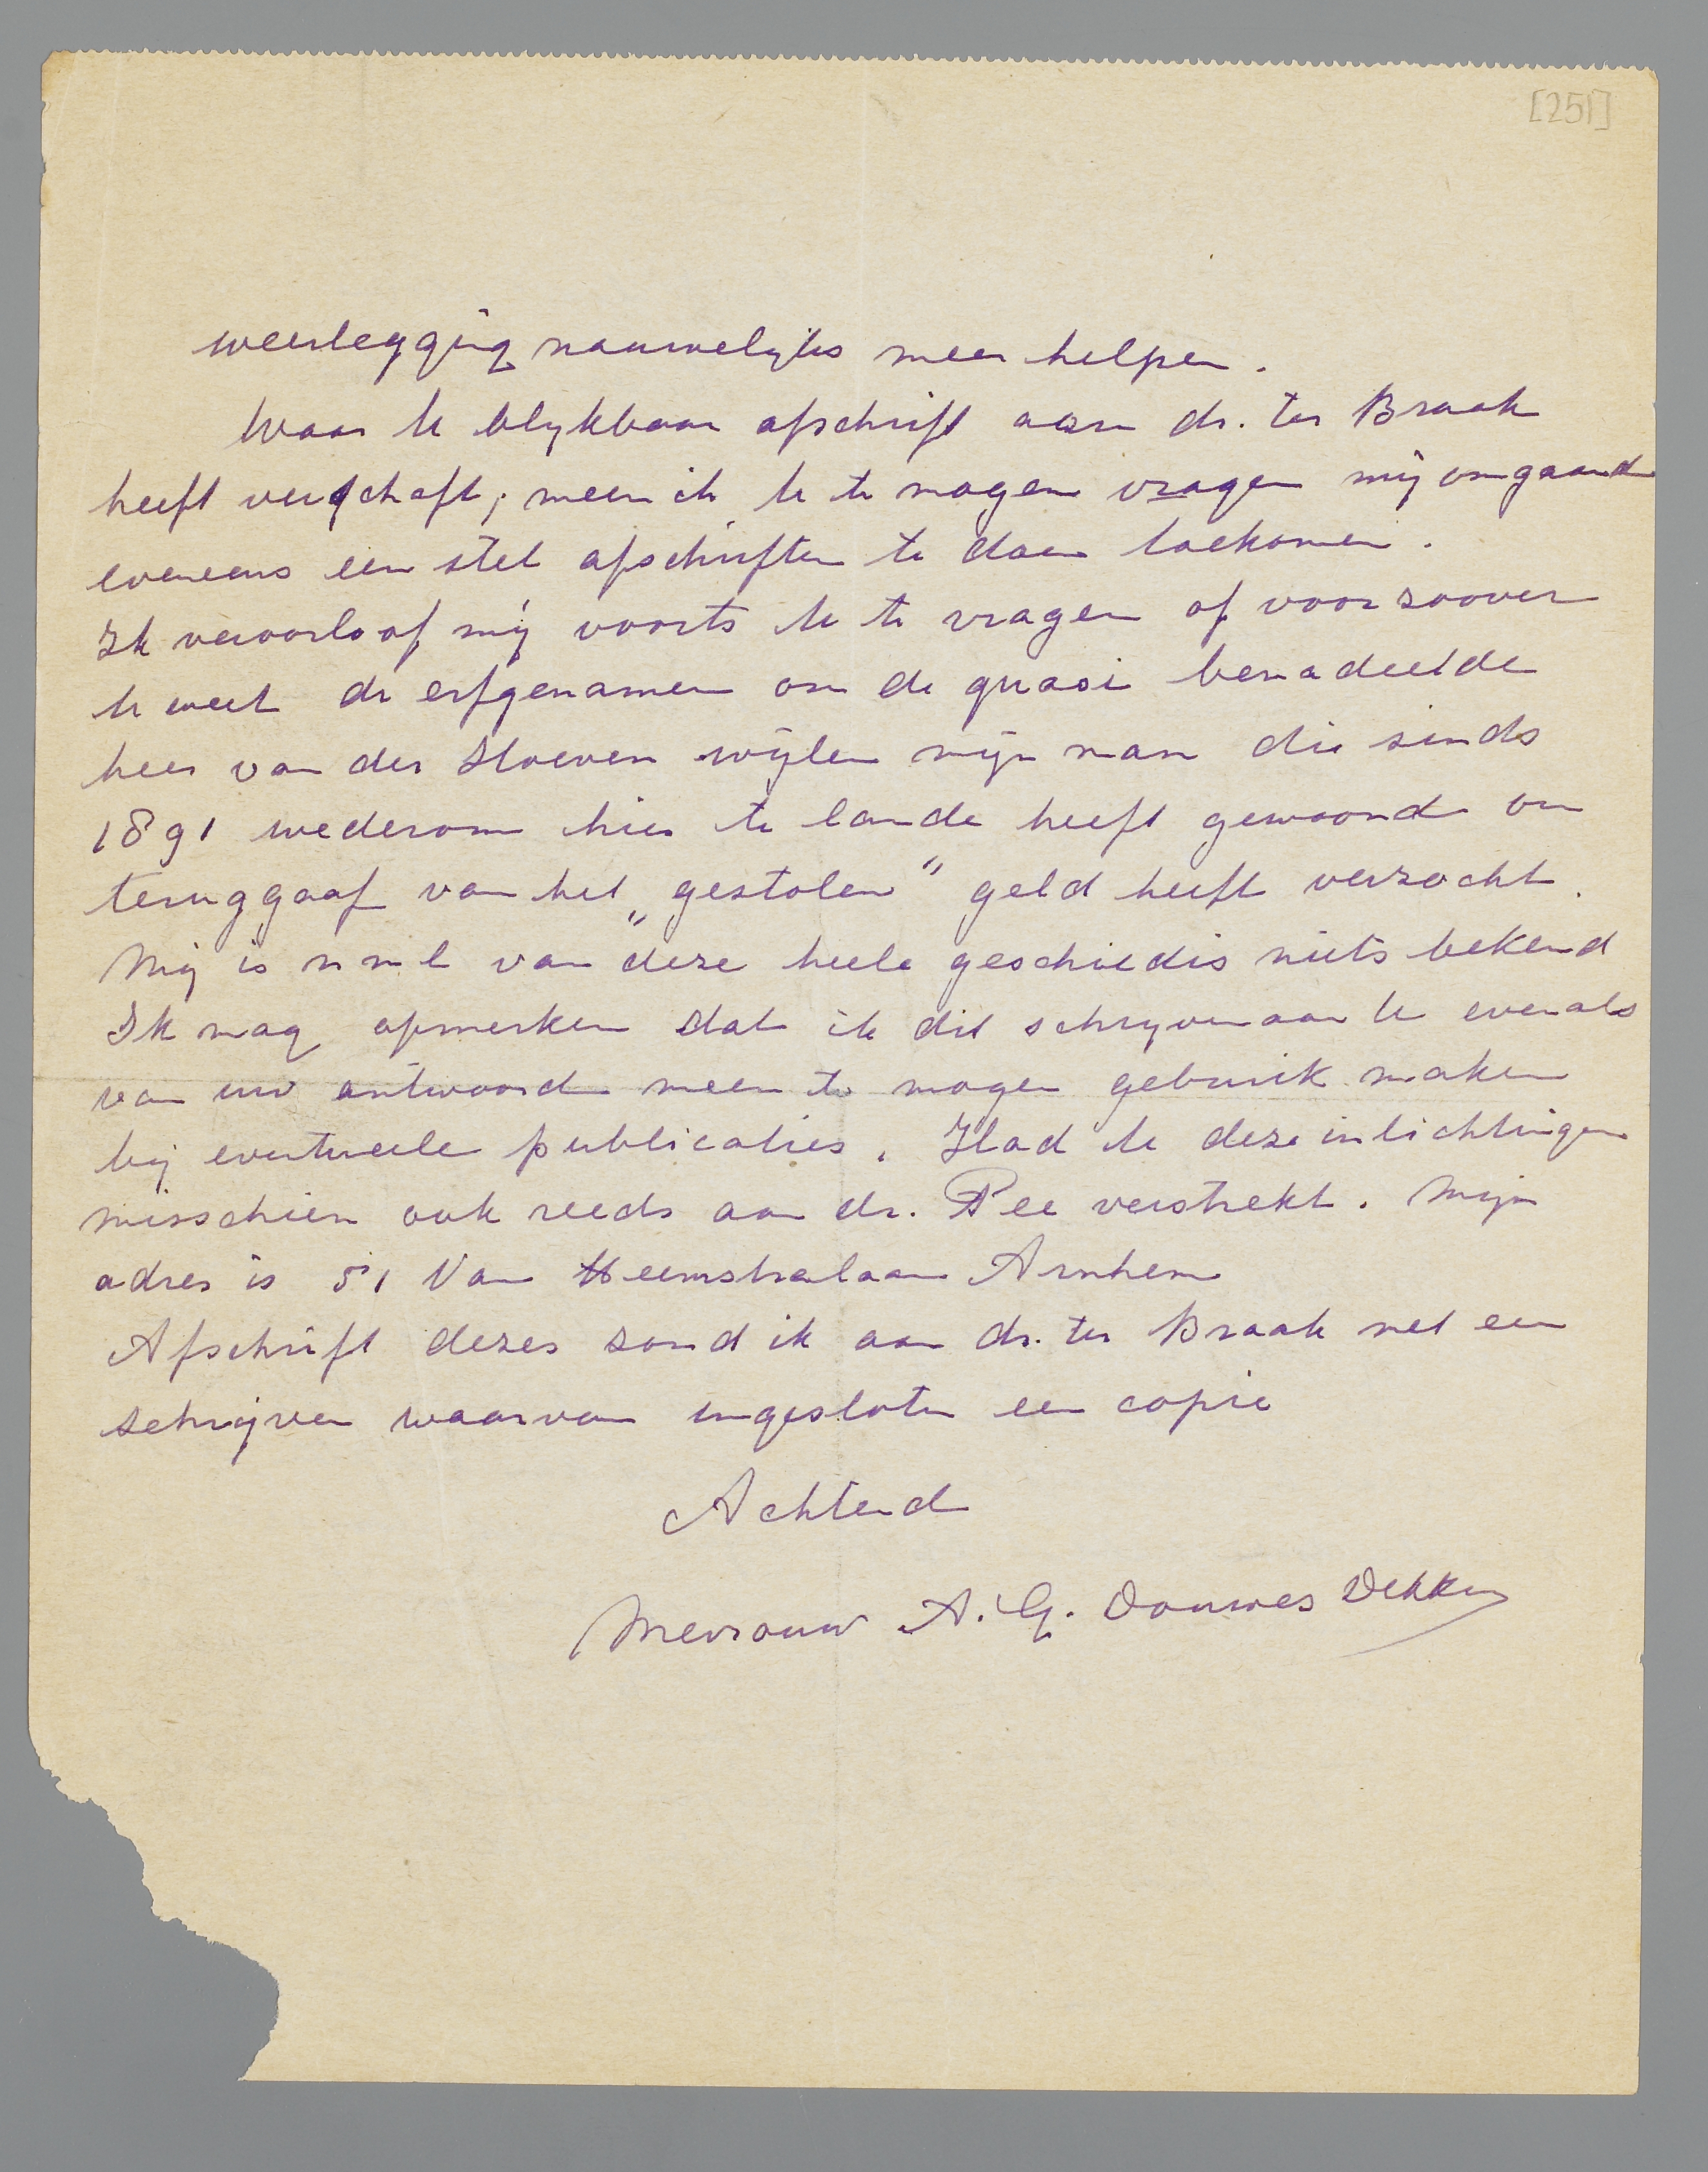 [251]
weerlegging nauwelijks meer helpen.
Waar U blijkbaar afschrift aan dr. ter Braak
heeft verschaft, meen ik U te mogen vragen mij omgaand
eveneens een stel afschriften te doen toekomen.
Ik veroorloof mij voorts U te vragen of voor zoover
U weet de erfgenamen om de quasi benadeelde
heer van der Hoeven wijlen mijn man die sinds
1891 wederom hier te lande heeft gewoond om
teruggaaf van het „gestolen" geld heeft verzocht.
Mij is nml van deze heele geschiedis niets bekend
Ik mag opmerken dat ik dit schrijven aan U evenals
van uw antwoord meen te mogen gebruik maken
bij eventueele publicaties. Had U deze inlichtingen
misschien ook reeds aan dr. Pee verstrekt. Mijn
adres is 51 Van Heemstralaan Arnhem
Afschrift dezes zond ik aan dr. ter Braak met een
schrijven waarvan ingesloten een copie
Achtend
Mevrouw A. G. Douwes Dekker